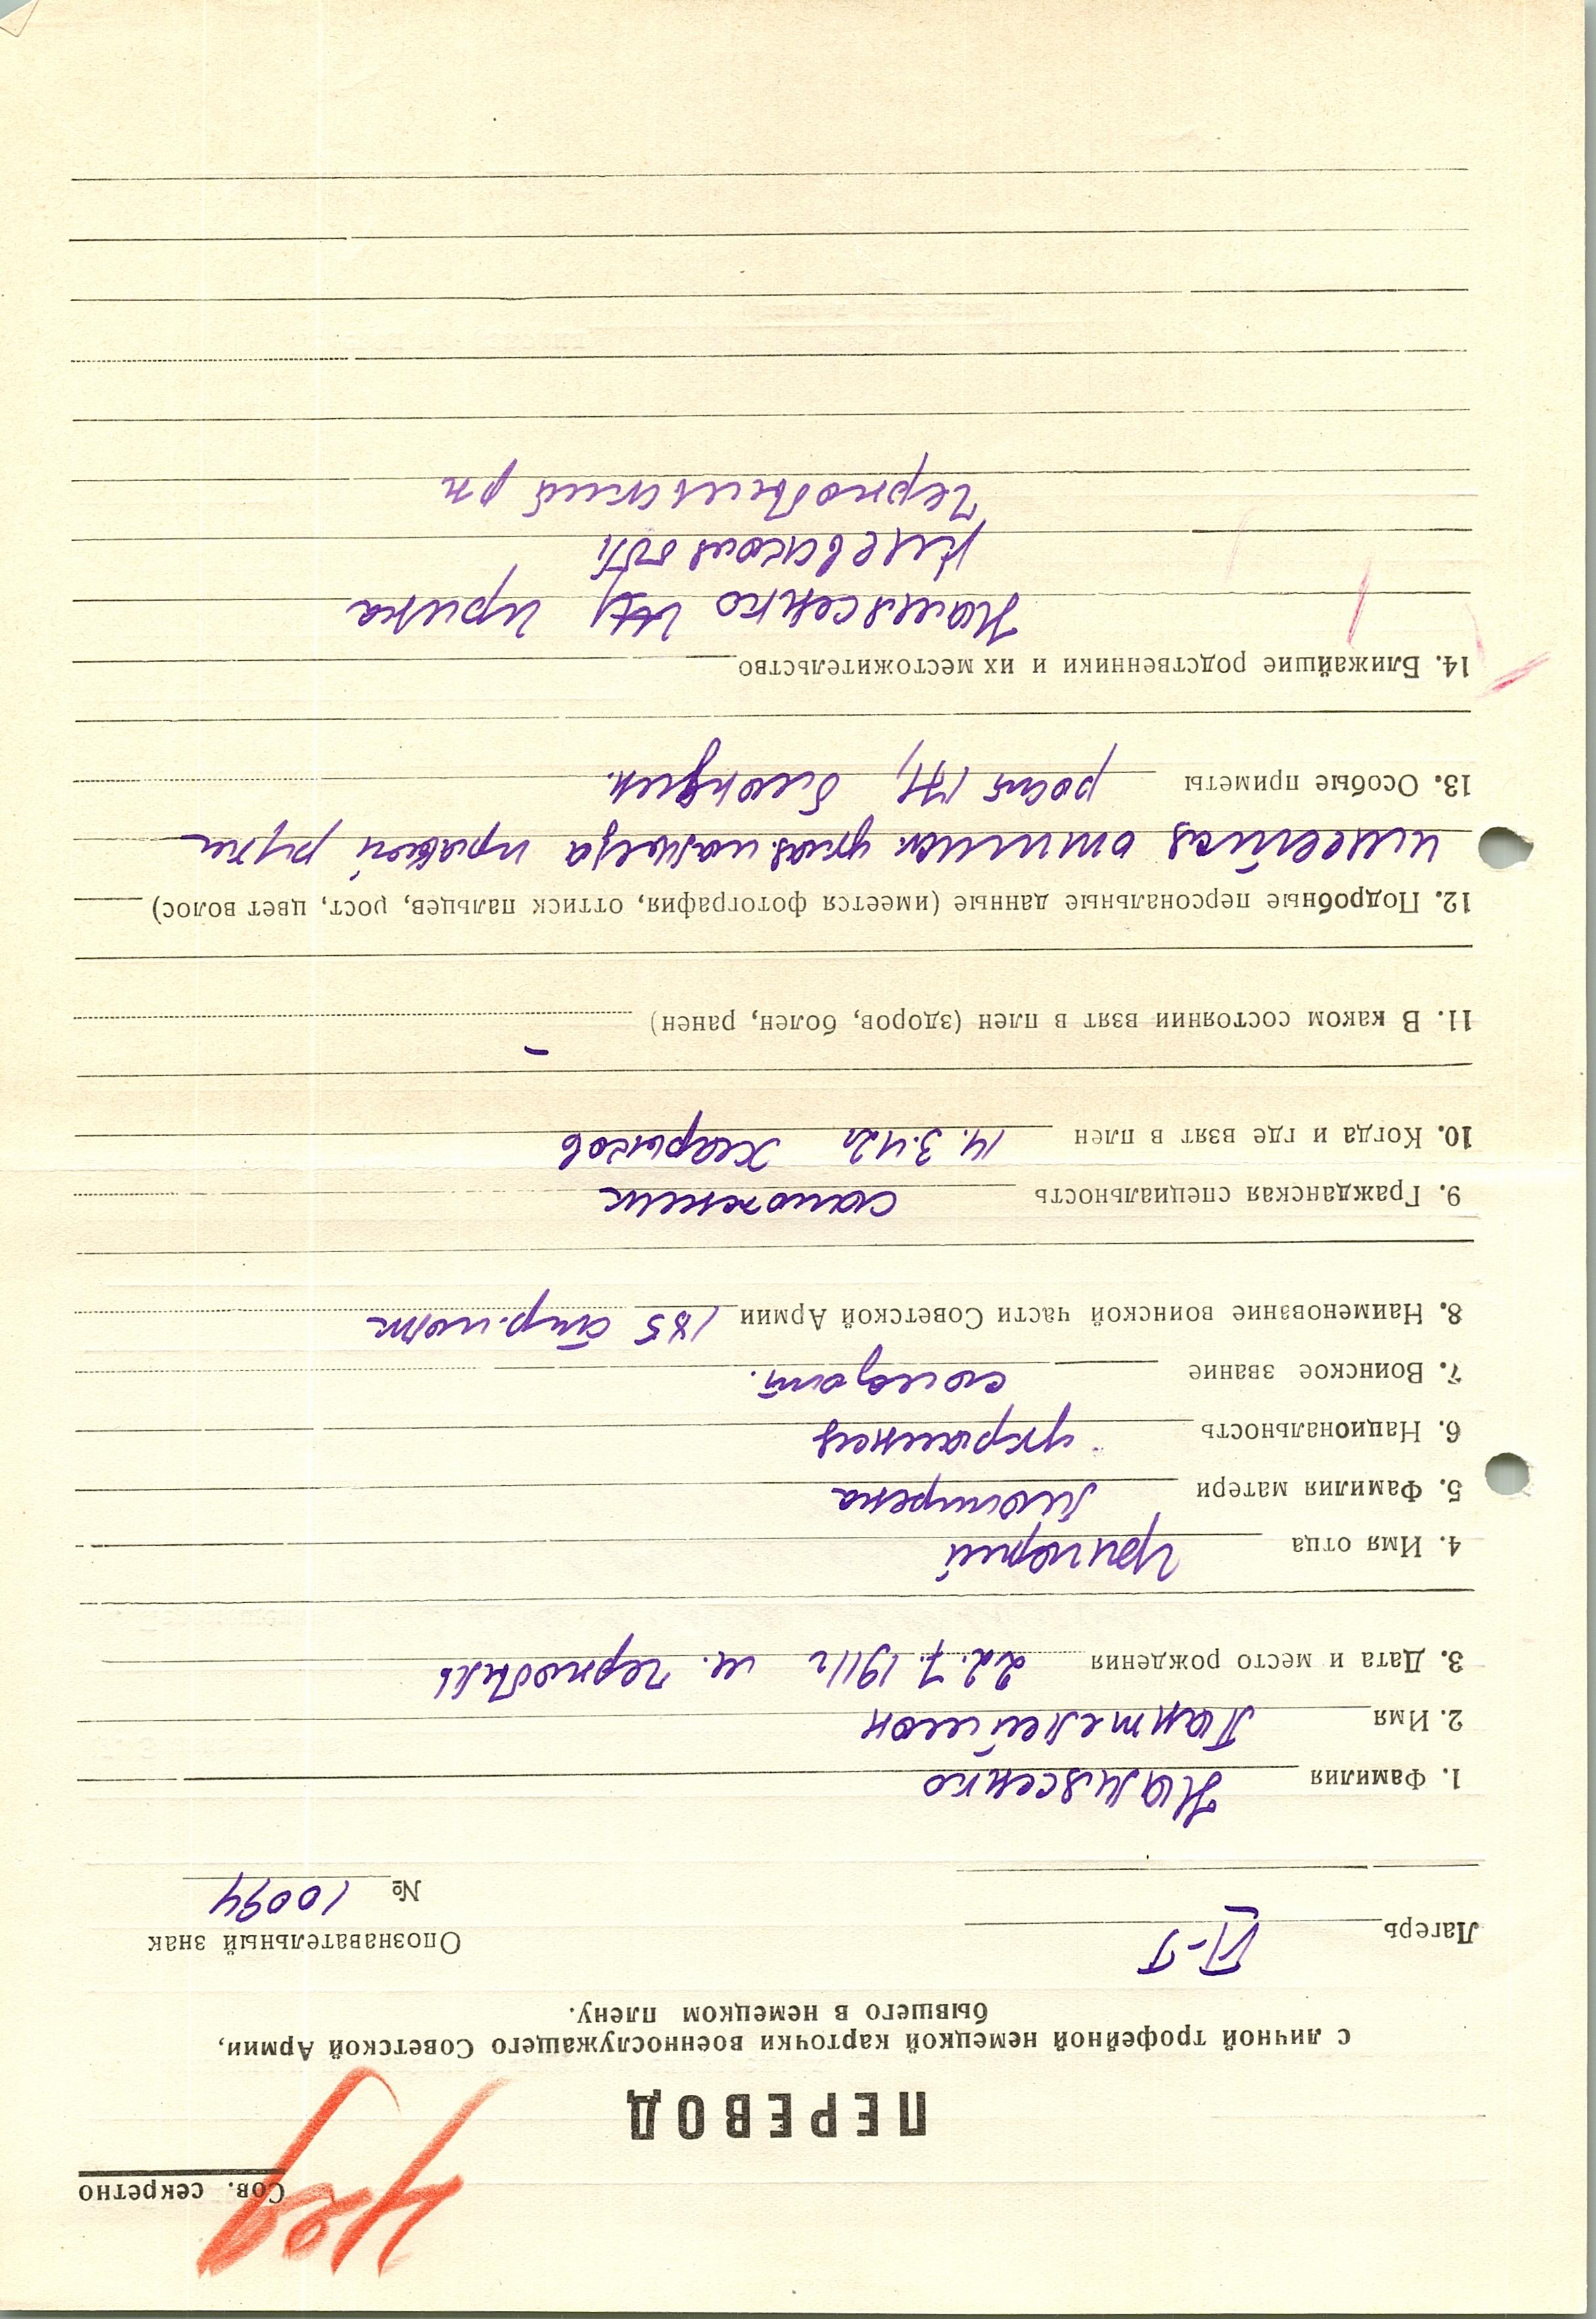 Сов. секретно
ПЕРЕВОД
с личной трофейной немецкой карточки военнослужащего Советской Армии,
бывшего в немецком плену.
Лагерь
Опознавательный знак
№ 10094
1. Фамилия
2. Имя Пантелеймон
3. Дата и место рождения 22.7.1911г м. Чернобыль
4. Имя отца Григорий
5. Фамилия матери
6. Национальность украинец
7. Воинское звание солдат.
8. Наименование воинской части Советской Армии 185
9. Гражданская специальность сапожник
10. Когда и где взят в плен 14.3.42г Харьков
11. В каком состоянии взят в плен (здоров, болен, ранен) –
12. Подробные персональные данные (имеется фотография, оттиск пальцев, рост, цвет волос)
имеется оттиск указ. пальца правой руки
13. Особые приметы рост 171, блондин.
14. Ближайшие родственники и их местожительство
Ирина
Киевская обл
Чернобыльский рн